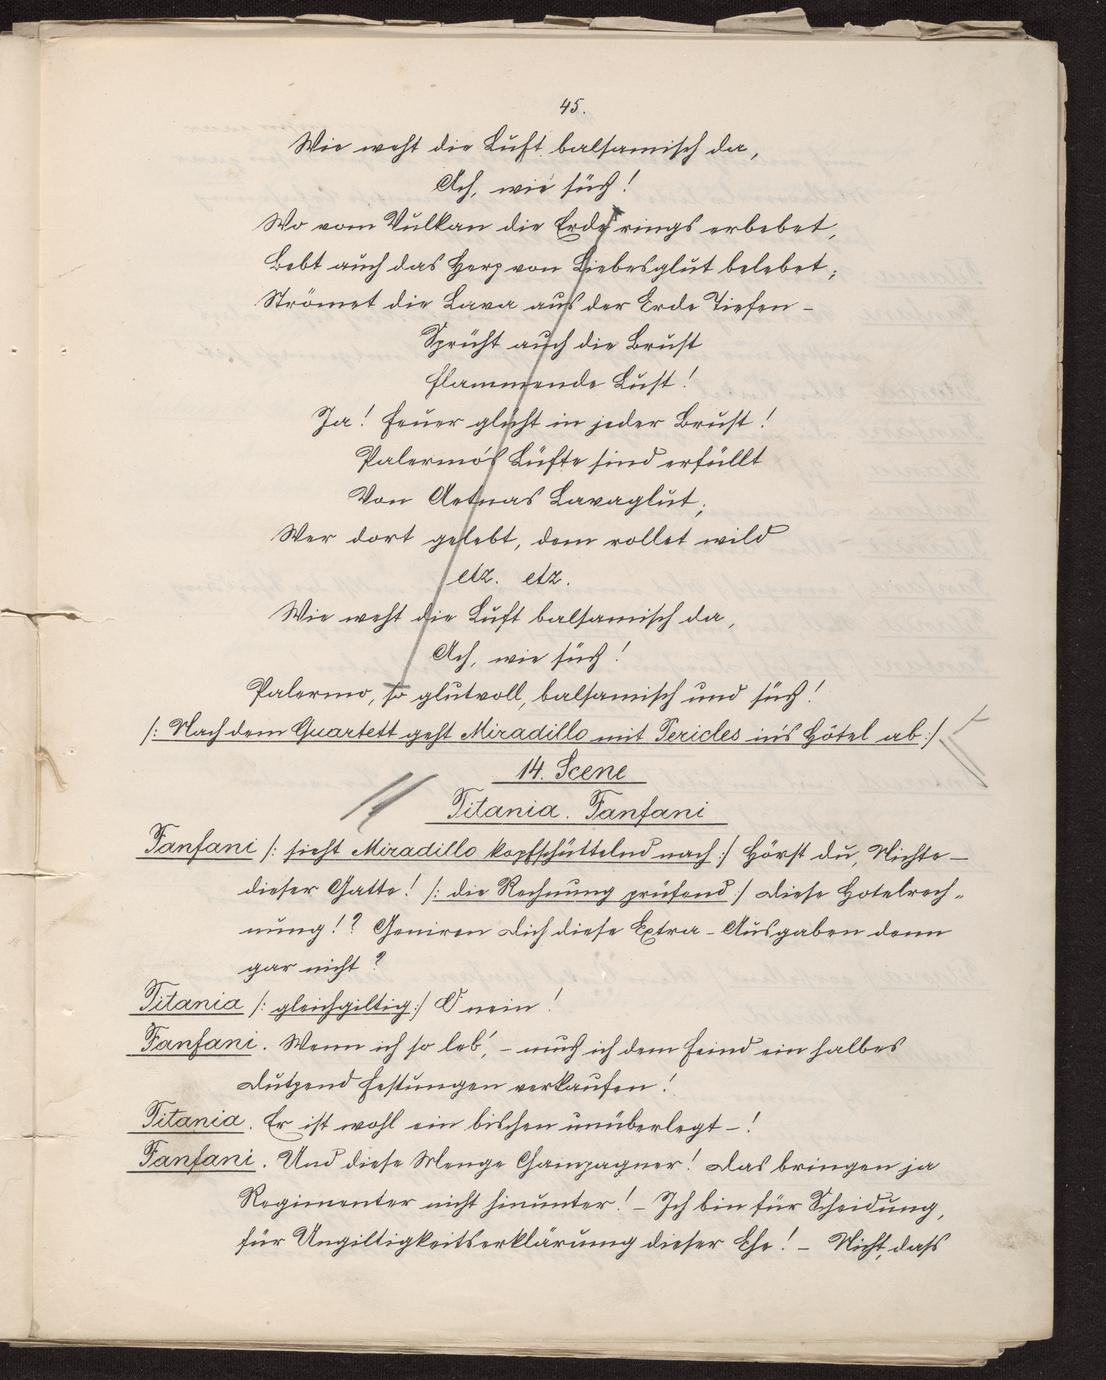 45.
Wie weht die Luft balsamisch da,
Ach, wie süß!
Wo vom Vulkan die Erde rings erbebet,
Bebt auch das Herz von Liebesglut belebet;
Strömet die Lava aus der Erde Tiefen –
Sprüht auch die Brust
flammende Lust!
Ja! Feuer glüht in jeder Brust!
Palermo's Lüfte sind erfüllt
Von Aetnas Lavaglut;
Wer dort gelebt, dem rollet wild
etz. etz.
Wie weht die Luft balsamisch da,
Ach, wie süß!
Palermo, so glutvoll, balsamisch und süß!
/: Nach dem Quartett geht Miradillo mit Pericles in's Hôtel ab :/
14. Scene
Titania. Fanfani
Fanfani /: sieht Miradillo kopfschüttelnd nach :/ Hörst du, Nichte –
dieser Gatte! /: die Rechnung prüfend :/ Diese Hotelrech-
nung!? Geniren Dich diese Extra-Ausgaben denn
gar nicht?
Titania /: gleichgiltig :/ O nein!
Fanfani. Wenn ich so leb', – muß ich dem Feind ein halbes
Dutzend Festungen verkaufen!
Titania. Er ist wohl ein bischen unüberlegt –!
Fanfani. Und diese Menge Champagner! Das bringen ja
Regimenter nicht hinunter! – Ich bin für Scheidung,
für Ungiltigkeitserklärung dieser Ehe! – Nicht, dass